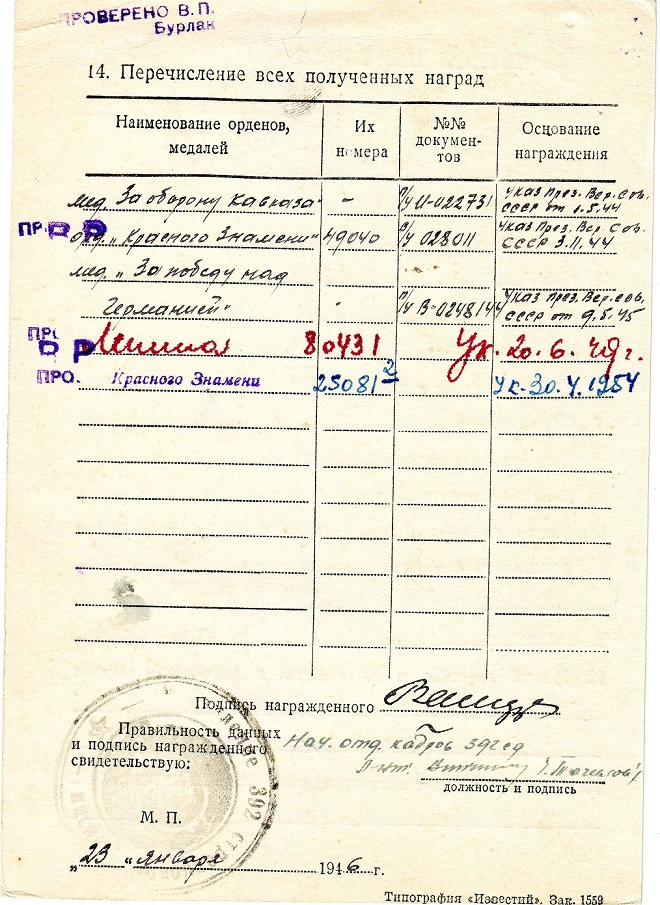 ПРОВЕРЕНО В.П.
Бурлак
14. Перечисление всех полученных наград
Наименование орденов, медалей
Их номера
№№ документов
Основание награждения
мед. За оборону Кавказа - П/у И-022731 Указ През. Вер. Сов. СССР от 1.5.44
ПР. В Р орд. „Красного Знамени" 49040 с/у 028011 Указ През. Вер. Сов. СССР 3.11.44
мед. „За победу над
Германией" - П/у В-0248144 Указ През. Вер. Сов. СССР от 9.5.45
ПР. В Р Ленина 80431 Ук. 20.6.49 г.
ПРО. Красного Знамени 25081 2 Ук. 30.4.1954
Подпись награжденного
Правильность данных
и подпись награжденного
свидетельствую:
Нач. отд. кадров 392 сд
должность и подпись
392 стр
М. П.
„23" января 1946 г.
Типография «Известий». Зак. 1559